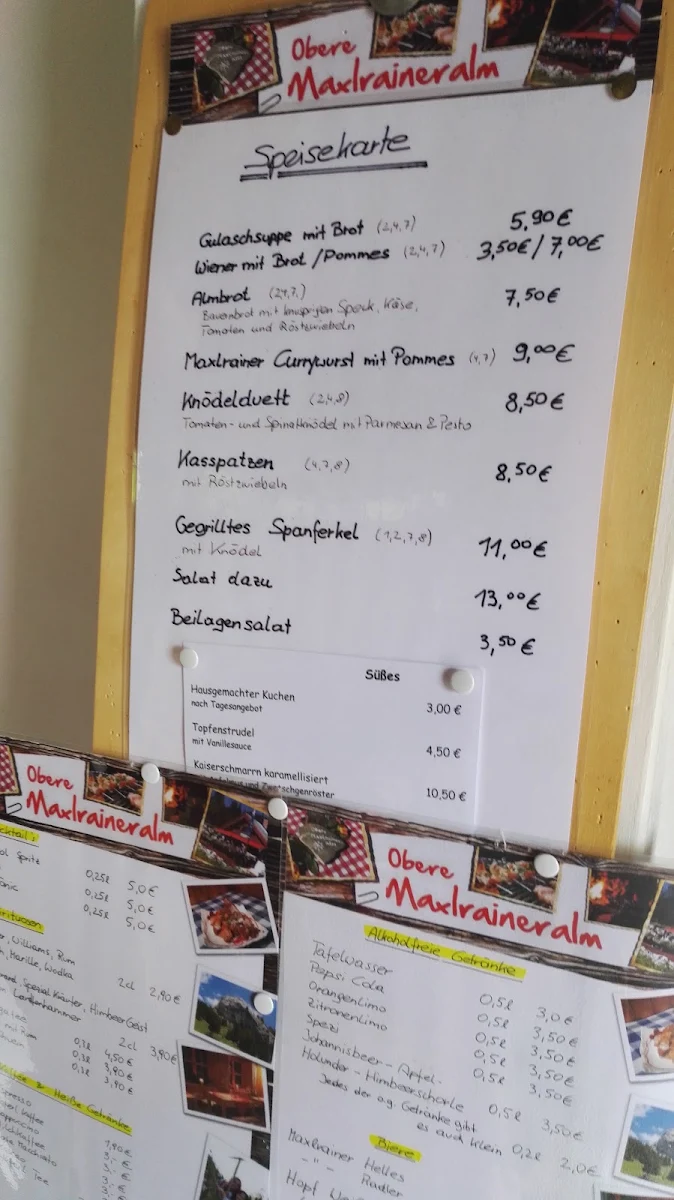 Obere
Maxlraineralm
Speisekarte
Gulaschsuppe mit Brot (2,4,7) 5,90€
Wiener mit Brot/Pommes (2,4,7) 3,50€/7,00€
Almbrot (2,4,7.) 7,50€
Bauernbrot mit knusprigen Speck, Käse,
Tomaten und Röstzwiebeln
Maxlrainer Currywurst mit Pommes (4,7) 9,00€
Knödelduett (2,4,8) 8,50€
Tomaten- und Spinatknödel mit Parmesan & Pesto
Kasspatzen (4,7,8) 8,50€
mit Röstzwiebeln
Gegrilltes Spanferkel (1,2,7,8) 11,00€
mit Knödel
Salat dazu 13,00€
Beilagensalat 3,50€
Süßes
Hausgemachter Kuchen 3,00 €
nach Tagesangebot
Topfenstrudel 4,50 €
mit Vanillesauce
Kaiserschmarrn karamellisiert 10,50 €
Obere
Maxlraineralm
Spritz 0,25l 5,0€
0,25l 5,0€
0,25l 5,0€
Williams, Rum 2cl 2,90€
Marille, Wodka
Spezial Kräuter, Himbeergeist 2cl 3,90€
0,3l 4,50€
mit Rum 0,3l 3,90€
0,3l 3,90€
& Heiße Getränke
1,90€
Tee
Obere
Maxlraineralm
Alkoholfreie Getränke
Tafelwasser 0,5l 3,0€
Pepsi Cola 0,5l 3,50€
Orangenlimo 0,5l 3,50€
Zitronenlimo 0,5l 3,50€
Spezi 0,5l 3,50€
Johannisbeer-Apfel-
Holunder-Himbeerschorle 0,5l 3,50€
Jedes der o.g. Getränke gibt
es auch klein 0,2l 2,0€
Biere
Maxlrainer Helles
-"- Radler
Hopf